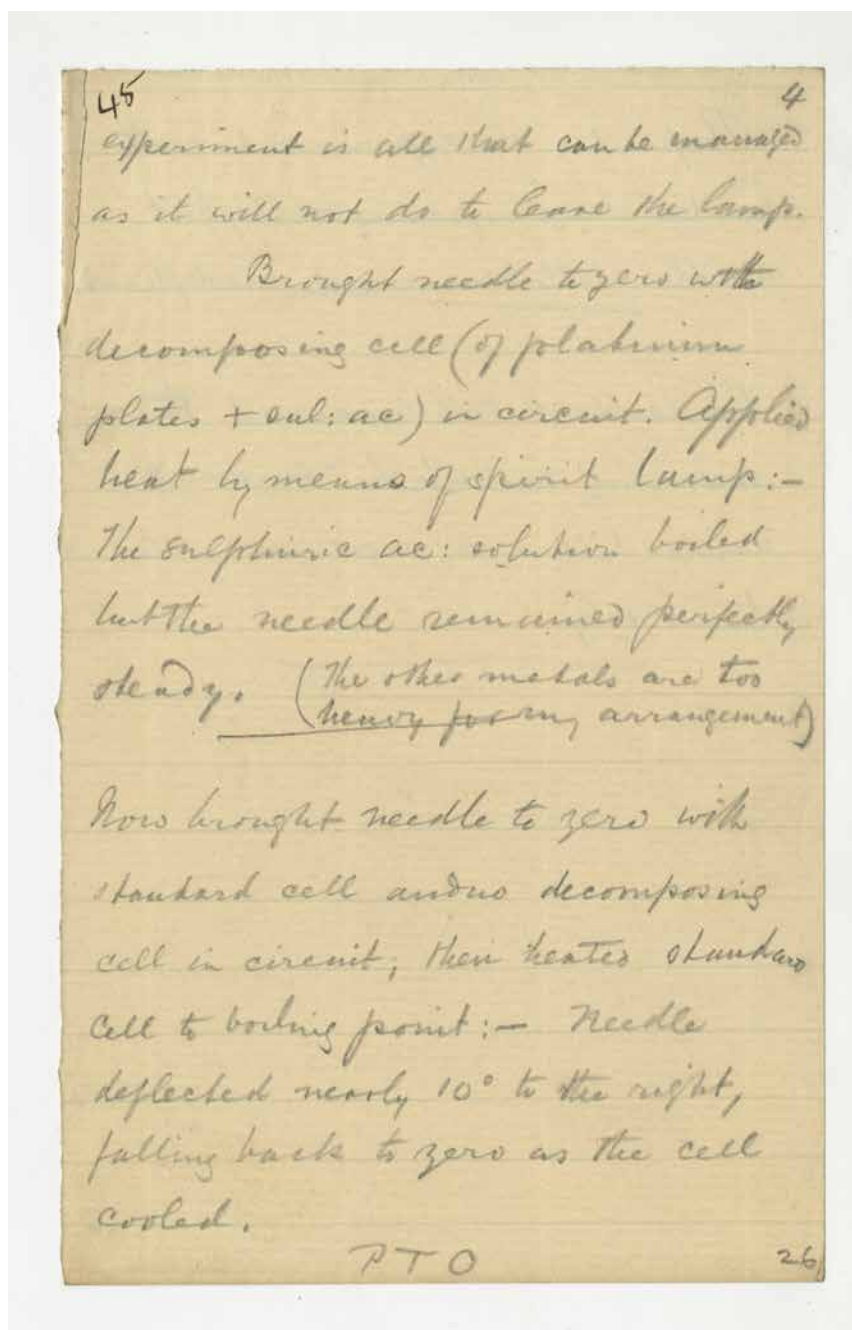 45
4
experiment is all that can be managed
as it will not do to leave the lamp.
Brought needle to zero with
decomposing cell (of platinum
plates + sul: ac) in circuit. Applied
heat by means of spirit lamp:—
The sulphuric ac: solution boiled
but the needle remained perfectly
steady. (The other metals are too
heavy for my arrangement)
Now brought needle to zero with
standard cell and no decomposing
cell in circuit, then heated standard
cell to boiling point:— Needle
deflected nearly 10° to the right,
falling back to zero as the cell
cooled.
PTO
26